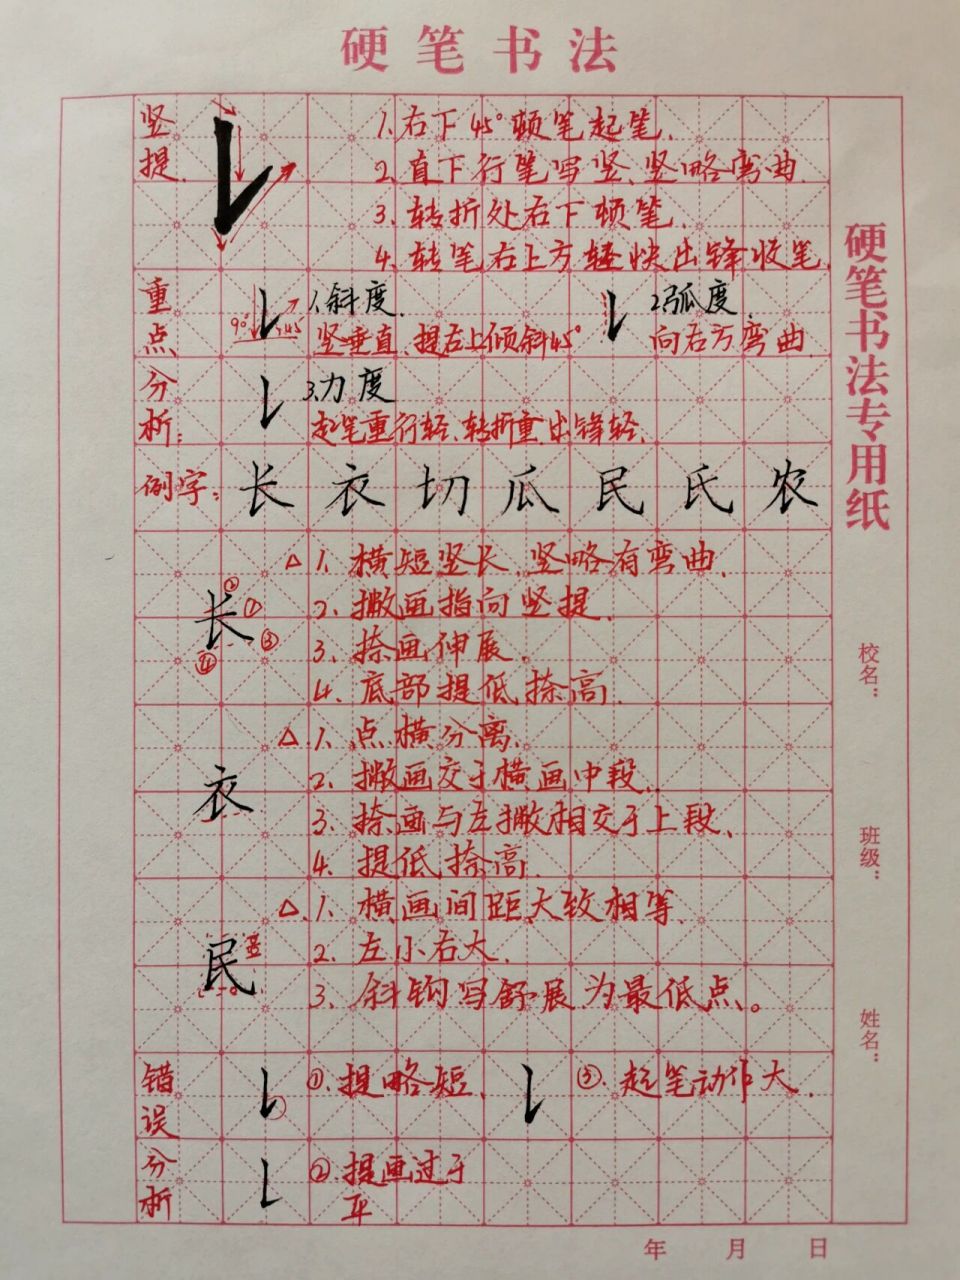 硬笔书法
竖提.
1.右下45°顿笔起笔.
2.直下行笔写竖、竖略弯曲.
3.转折处右下顿笔.
4.转笔右上方轻快出锋收笔.
重点
90°
45°
1.斜度.
竖垂直、提右上倾斜45°
2.弧度.
向右方弯曲.
分析:
3.力度
起笔重行轻、转折重出锋轻、
例字: 长 衣 切 瓜 民 氏 农
长
②
①
③
④
△1.横短竖长、竖略有弯曲.
2.撇画指向竖提.
3.捺画伸展.
4.底部提低捺高.
衣
△1.点横分离.
2.撇画交于横画中段.
3.捺画与左撇相交于上段、
4.提低捺高.
民
△.1.横画间距大致相等.
2.左小右大.
3.斜钩写舒展为最低点。
错误
①.提略短、
③.起笔动作大.
分析
②.提画过于
平
硬笔书法专用纸
校名:
班级:
姓名:
年 月 日